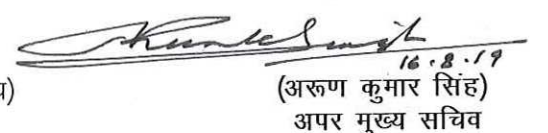 16.8.19
(अरुण कुमार सिंह)
अपर मुख्य सचिव